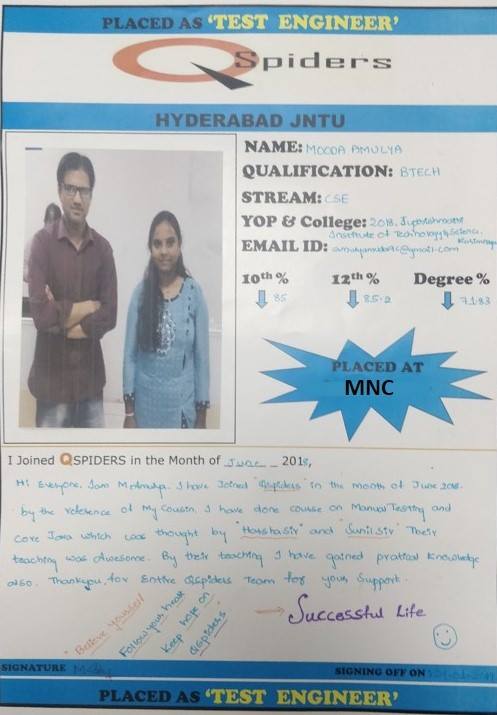 PLACED AS ‘TEST ENGINEER’
QSpiders
HYDERABAD JNTU
NAME: MOODA AMULYA
QUALIFICATION: BTECH
STREAM: CSE
YOP & College: 2018,
Institute of Technology & Science,
EMAIL ID:
10th% 12th% Degree %
85 85.2 71.83
PLACED AT
MNC
I Joined QSPIDERS in the Month of June 2018,
Hi Everyone, Iam M.Amulya. I have Joined "Qspiders" in the month of June 2018.
by the reference of My Cousin. I have done course on Manual Testing and
Core Java which was thought by "Harsha Sir" and "Sunil Sir" Their
teaching was Awesome. By their teaching I have gained pratical knowledge
also. Thankyou, for Entire Qspiders Team for your Support.
"Believe yourself
Follow your heart
Keep hope on
Qspiders"
Successful Life
SIGNATURE
SIGNING OFF ON
PLACED AS ‘TEST ENGINEER’